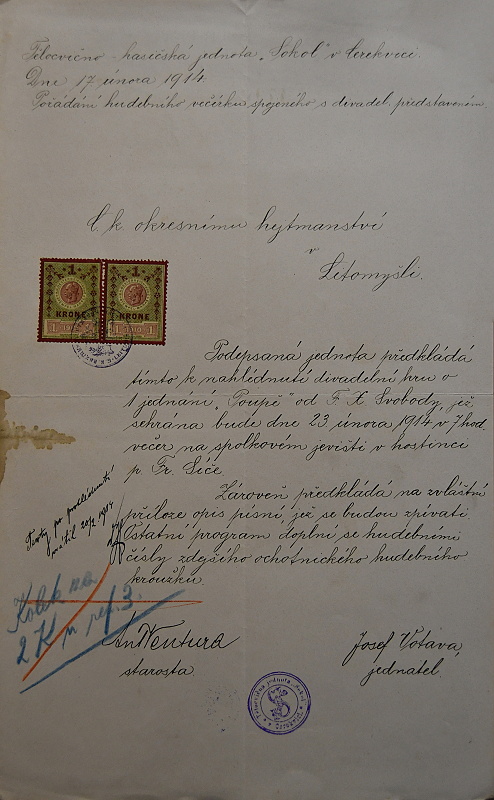 Tělocvično - hasičská jednota „Sokol" v Cerekvici.
Dne 17 února 1914.
Pořádání hudebního večírku spojeného s divadel. představením
C. k. okresnímu hejtmanství
v
Litomyšli.
1 1
KRONE KRONE
1 1910 1
Podepsaná jednota předkládá
tímto k nahlédnutí divadelní hru o
1 jednání „Poupě" od F. X. Svobody, jež
sehrána bude dne 23 února 1914 v 7 hod.
večer na spolkovém jevišti v hostinci
p. Fr. Síče.
Zároveň předkládá na zvláštní
příloze opis písní, jež se budou zpívati.
Ostatní program doplní se hudebními
čísly zdejšího ochotnického hudebního
kroužku.
Texty po prohlédnutí
vrátil 20/2 1914
Kolek na
2 K
Ant Ventura
starosta
Josef Votava,
jednatel.